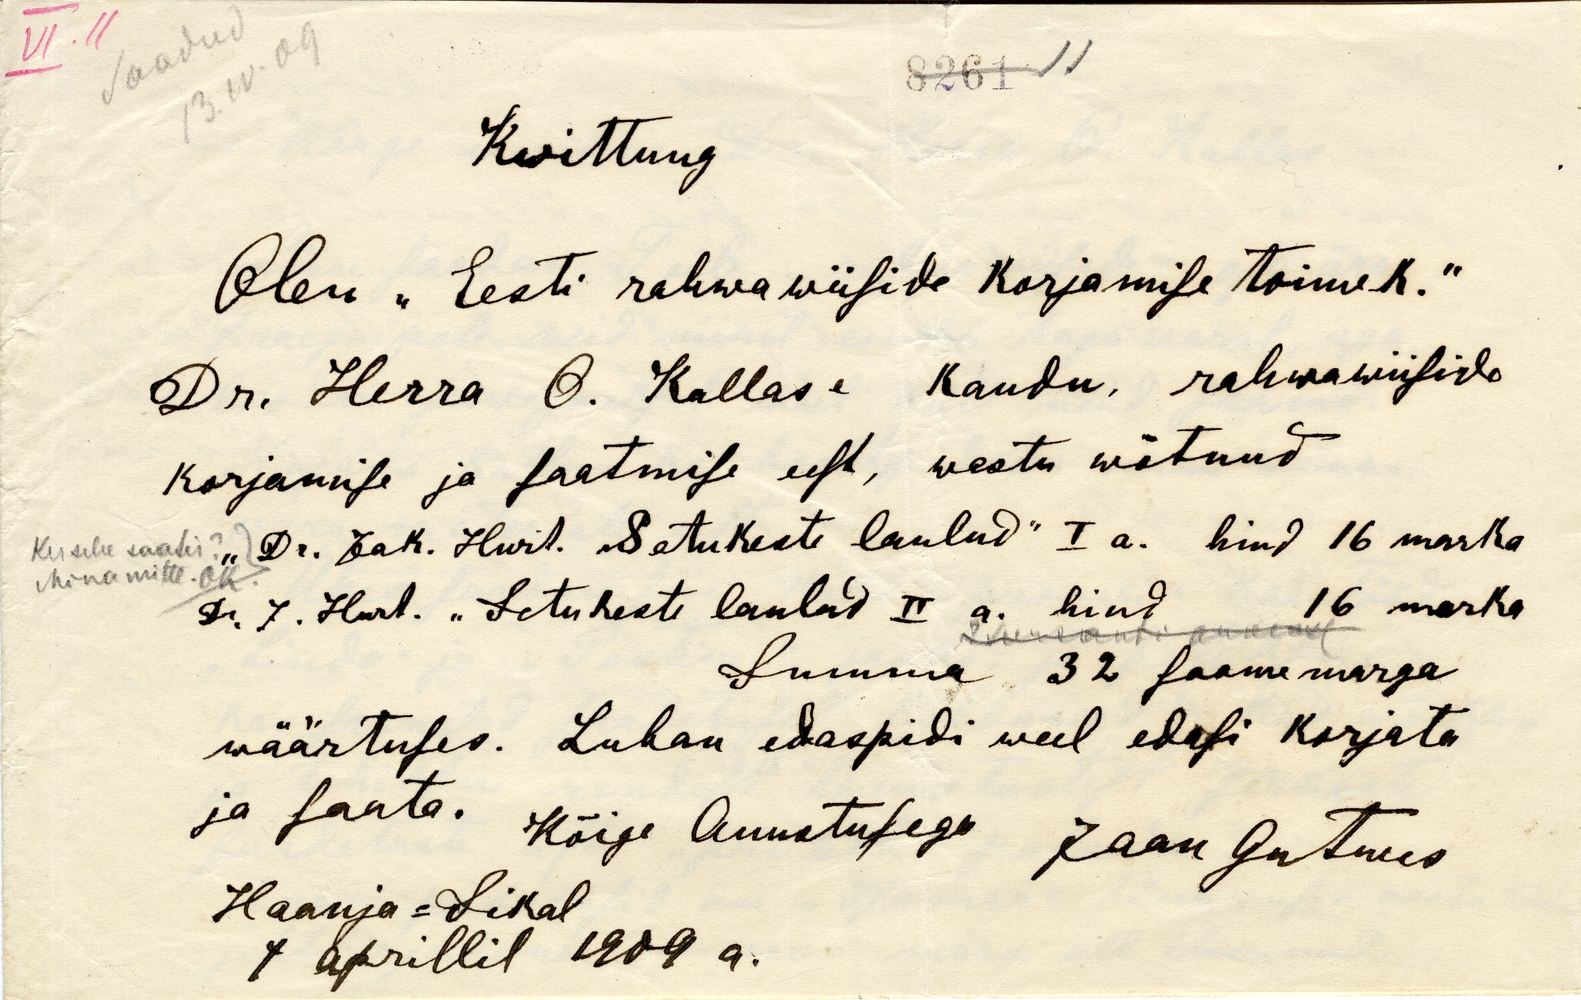 VI. 11
Saadud
13. IV. 09
8261 11
Kwittung
Olen „Eesti rahwawiiside korjamise toimek."
Dr. Herra O. Kallase kaudu, rahwawiiside
korjamise ja saatmise eest, wastu wõtnud
Kes selle saatis?
Mina mitte. OK.
„Dr. Jak. Hurt. „Setukeste laulud" I a. hind 16 marka
Dr. J. Hurt. „Setukeste laulud II a. hind 16 marka
Summa 32 soome marga
wäärtuses. Luban edaspidi weel edasi korjata
ja saata.
Kõige Auustusega Jaan Gutwes
Haanja=Sikal
7 aprillil 1909 a.